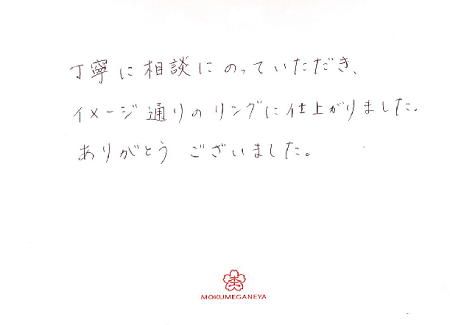 丁寧に相談にのっていただき、
イメージ通りのリングに仕上がりました。
ありがとう ございました。
MOKUMEGANEYA